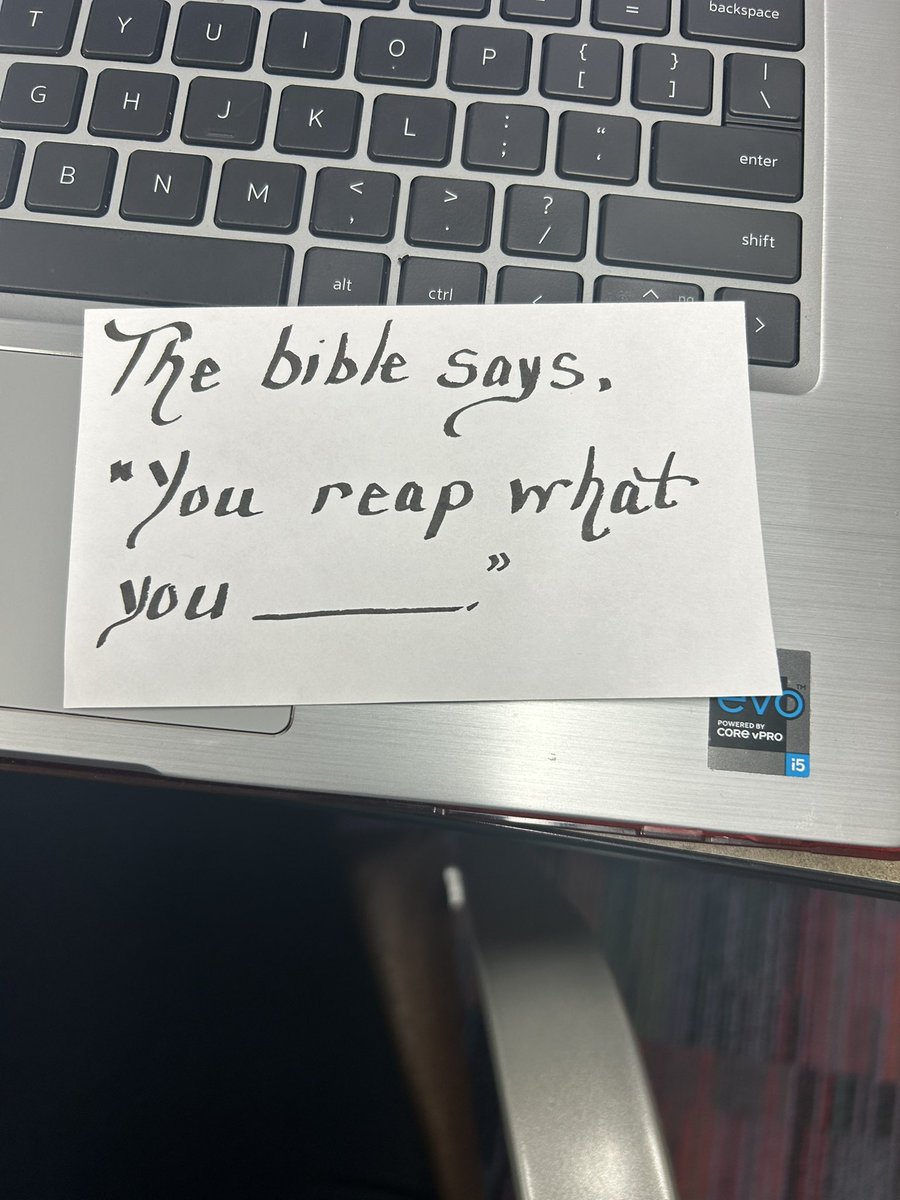 backspace
T Y U I O P { [ } ] | \
G H J K L : ; " ' enter
B N M < , > . ? / shift
alt ctrl < ^ pg >
The bible says,
"You reap what
you ______."
evo™
POWERED BY
CORE vPRO
i5